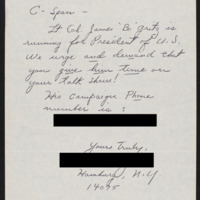 C-Span -
Lt Col. James "Bo" Gritz is
running for President of U.S.
We urge and demand that
you give him time on
your talk shows!
His campaign Phone
number is :
Yours Truly,
Hamburg, N.Y
14075